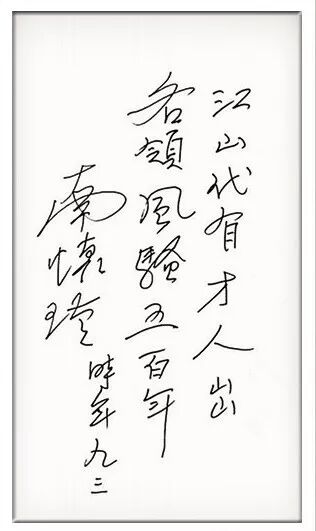 江山代有才人出
各領風騷五百年
南懷瑾 時年九三